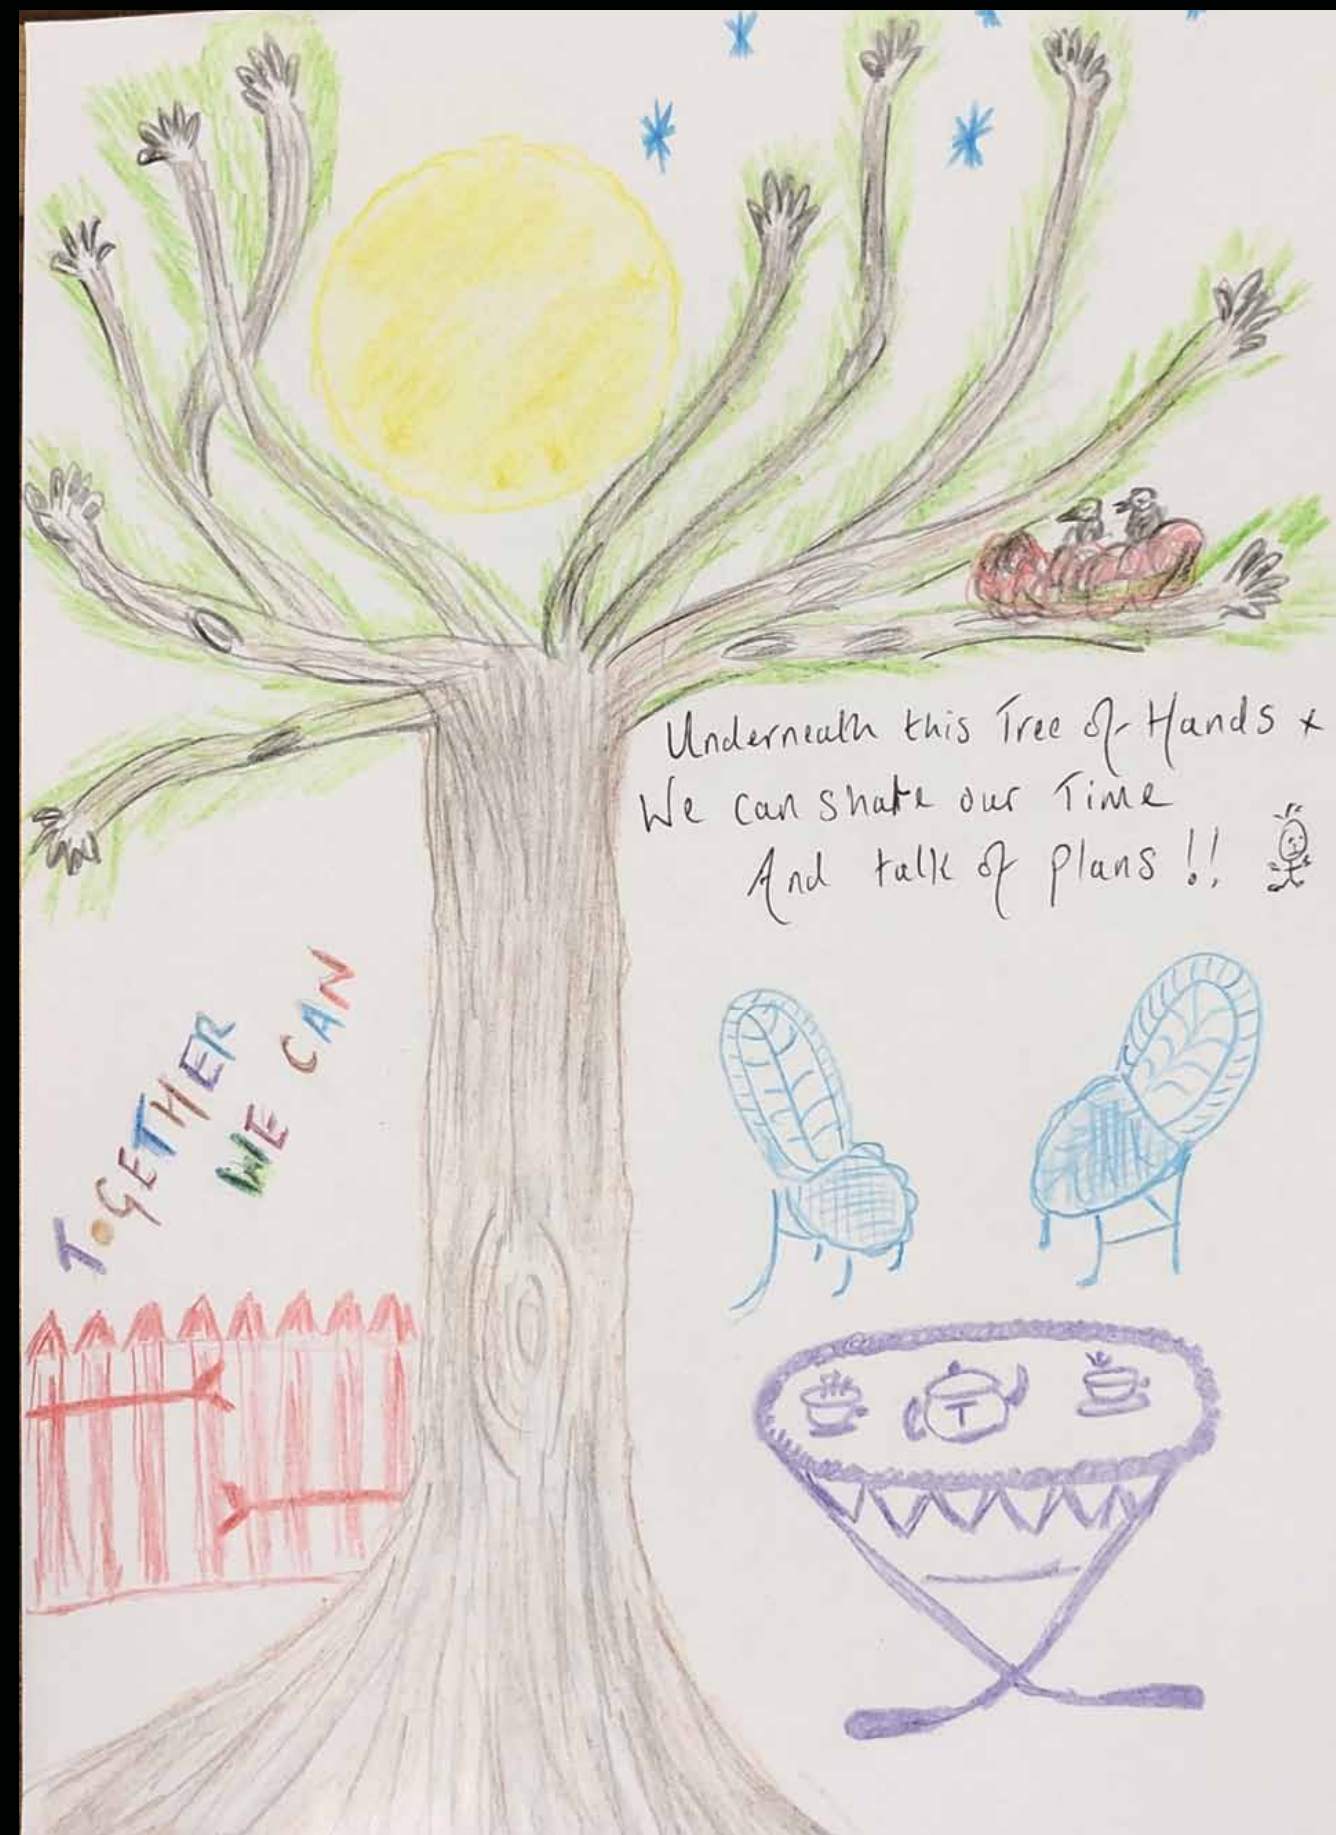 Underneath this Tree of Hands x
We can share our Time
And talk of plans !!
TOGETHER
WE CAN
T